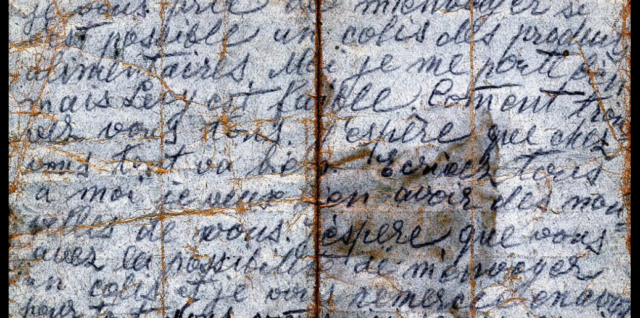 je vous prie de m'envoyer si
est possible un colis des produits
alimentaires. Moi je me porte bien
mais Levy est faible. Coment trou
vez vous tous. J'espère que chez
vous tout va bien. Ecrivez tous
a moi je veux bon avoir des nou
velles de vous. J'espere que vous
avez la possibilité de m'envoyer
un colis et je vous remercie en avan
pour tout